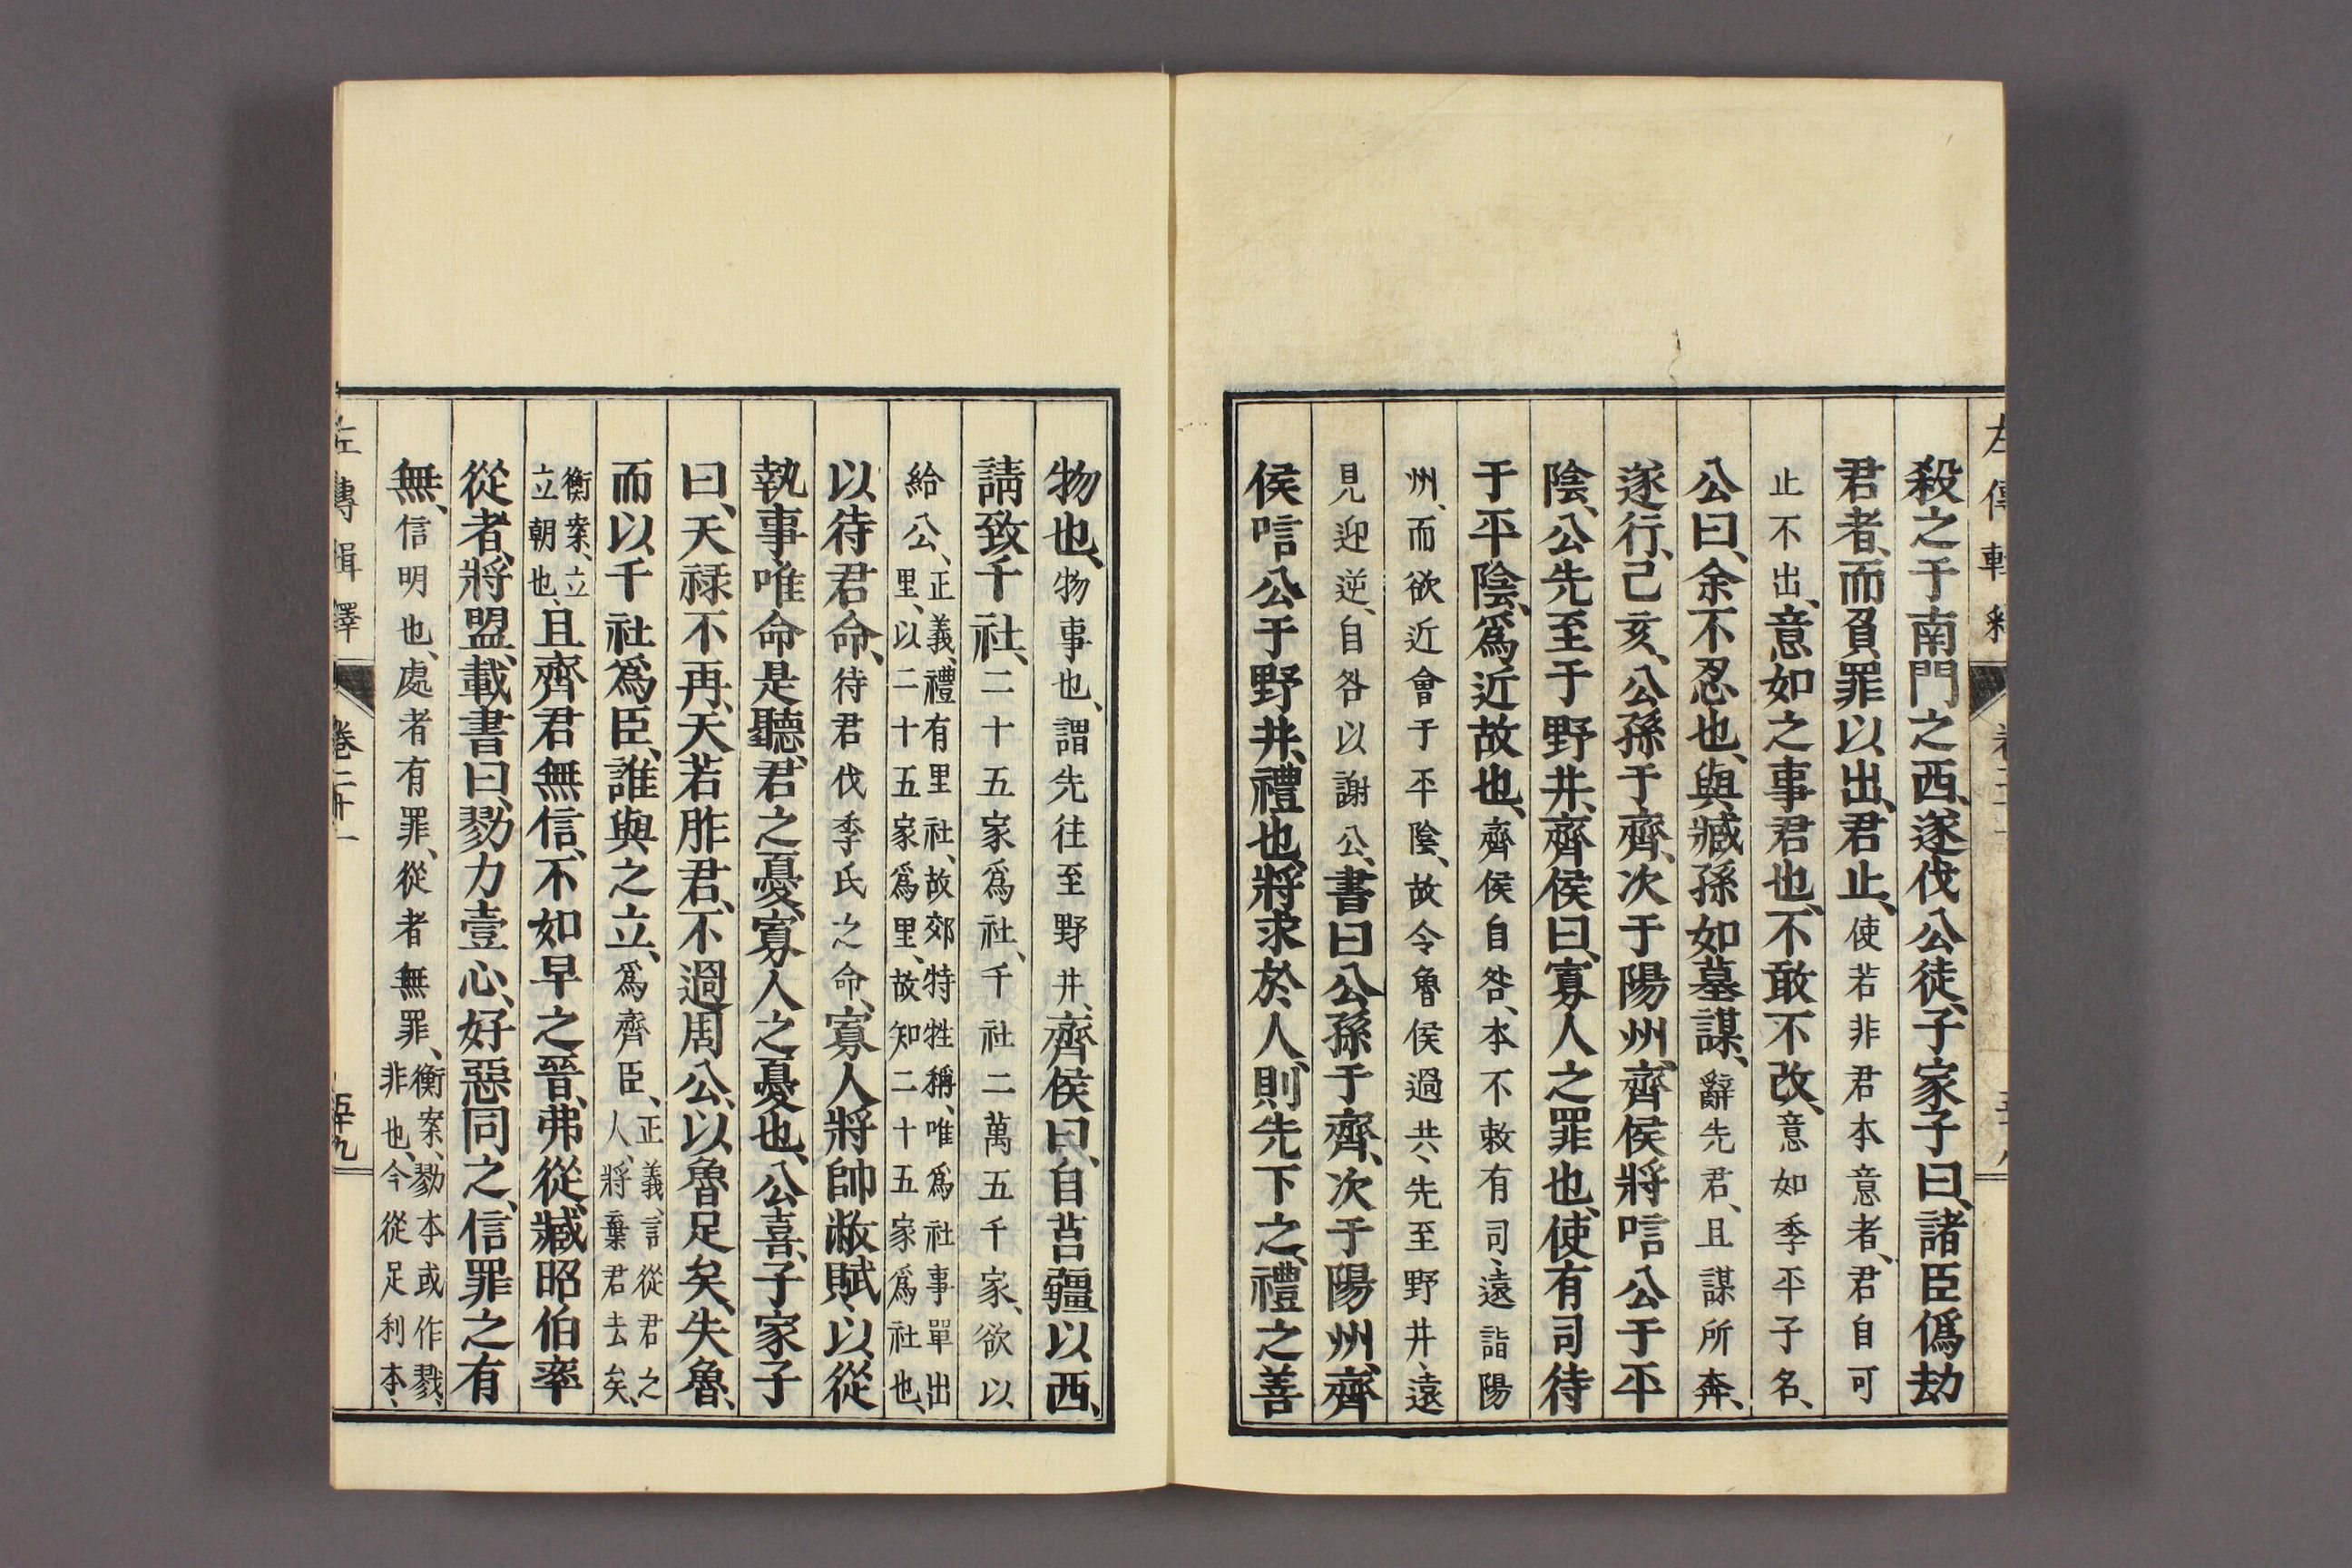 殺之于南門之西、遂伐公徒、子家子曰、諸臣僞劫
君者、而負罪以出、君止、使若非君本意者、君自可
止不出、意如之事君也、不敢不改、意如季平子名、
公曰、余不忍也、與臧孫如墓謀、辭先君、且謀所奔、
遂行、己亥、公孫于齊、次于陽州、齊侯將唁公于平
陰、公先至于野井、齊侯曰、寡人之罪也、使有司待
于平陰、爲近故也、齊侯自咎、本不敕有司、遠詣陽
州、而欲近會于平陰、故令魯侯過共、先至野井、遠
見迎逆、自咎以謝公、書曰公孫于齊、次于陽州、齊
侯唁公于野井、禮也、將求於人、則先下之、禮之善
物也、物事也、謂先往至野井、齊侯曰、自莒疆以西、
請致千社、二十五家爲社、千社二萬五千家、欲以
給公、正義、禮有里社、故郊特牲稱、唯爲社事單出
里、以二十五家爲里、故知二十五家爲社也、
以待君命、待君伐季氏之命、寡人將帥敝賦、以從
執事、唯命是聽、君之憂、寡人之憂也、公喜、子家子
曰、天祿不再、天若胙君、不過周公、以魯足矣、失魯、
而以千社爲臣、誰與之立、爲齊臣、正義、言從君之
人、將棄君去矣、
衡案、立
立朝也、且齊君無信、不如早之晉、弗從、臧昭伯率
從者、將盟、載書曰、勠力壹心、好惡同之、信罪之有
無、信明也、處者有罪、從者無罪、衡案、勠本或作戮、
非也、今從足利本、
左傳輯釋 卷二十一 五十九